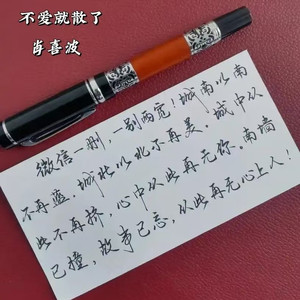 不爱就散了
肖喜波
微信一删，一别两宽！城南以南
不再蓝，城北以北不再美。城中从
此不再挤，心中从此再无你。南墙
已撞，故事已忘，从此再无心上人！